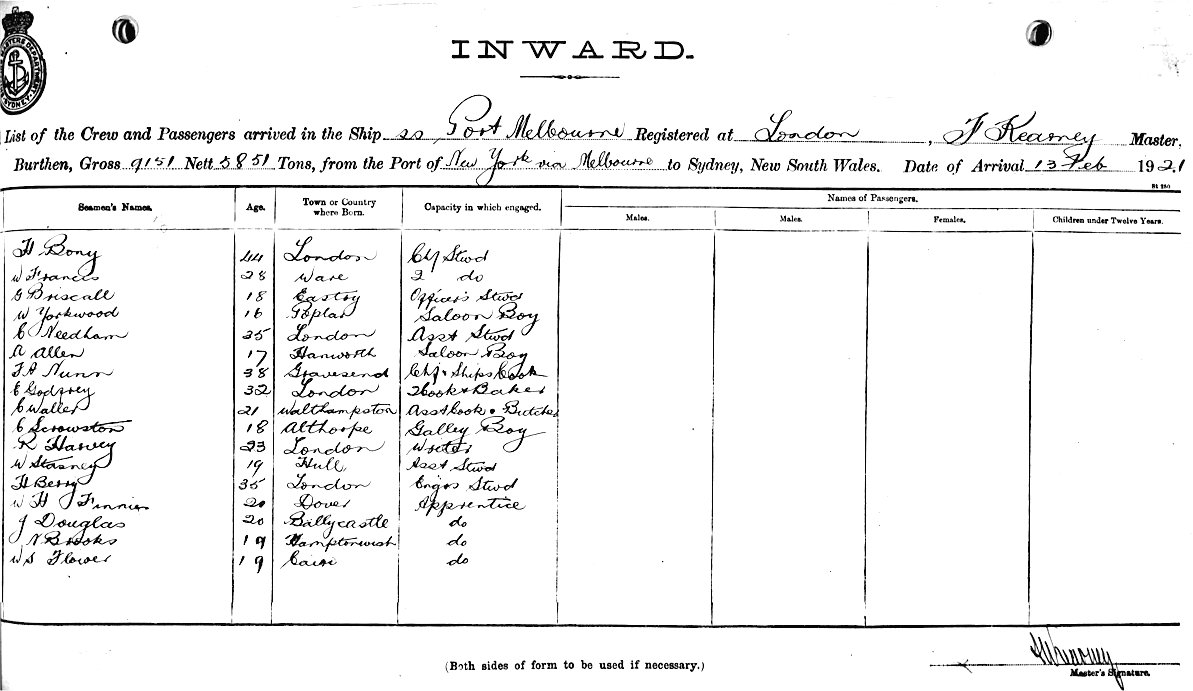 INWARD.
List of the Crew and Passengers arrived in the Ship ss Port Melbourne Registered at London, F Kearney Master,
Burthen, Gross 9151 Nett 5851 Tons, from the Port of New York via Melbourne to Sydney, New South Wales. Date of Arrival 13 Feb 1921
Seamen's Names. Age. Town or Country where Born. Capacity in which engaged. Names of Passengers.
Males. Males. Females. Children under Twelve Years.
H Bony 44 London Chf Stwd
W Francis 28 Ware 2 do
G Briscall 18 Eastry Officers Stwd
W Yorkwood 16 Poplar Saloon Boy
C Needham 35 London Asst Stwd
A Allen 17 Hanworth Saloon Boy
F A Nunn 38 Gravesend Chf & Ships Cook
C Godfrey 32 London 2 Cook & Baker
C Waller 21 Walthampston Asst Cook & Butcher
C Scrowston 18 Althorpe Galley Boy
R Harvey 23 London Writer
W Stasney 19 Hull Asst Stwd
H Berry 35 London Engrs Stwd
W H Finnis 20 Dover Apprentice
J Douglas 20 Ballycastle do
N Brooks 19 Hamptonwish do
W S Flower 19 Cairo do
(Both sides of form to be used if necessary.)
Master's Signature.